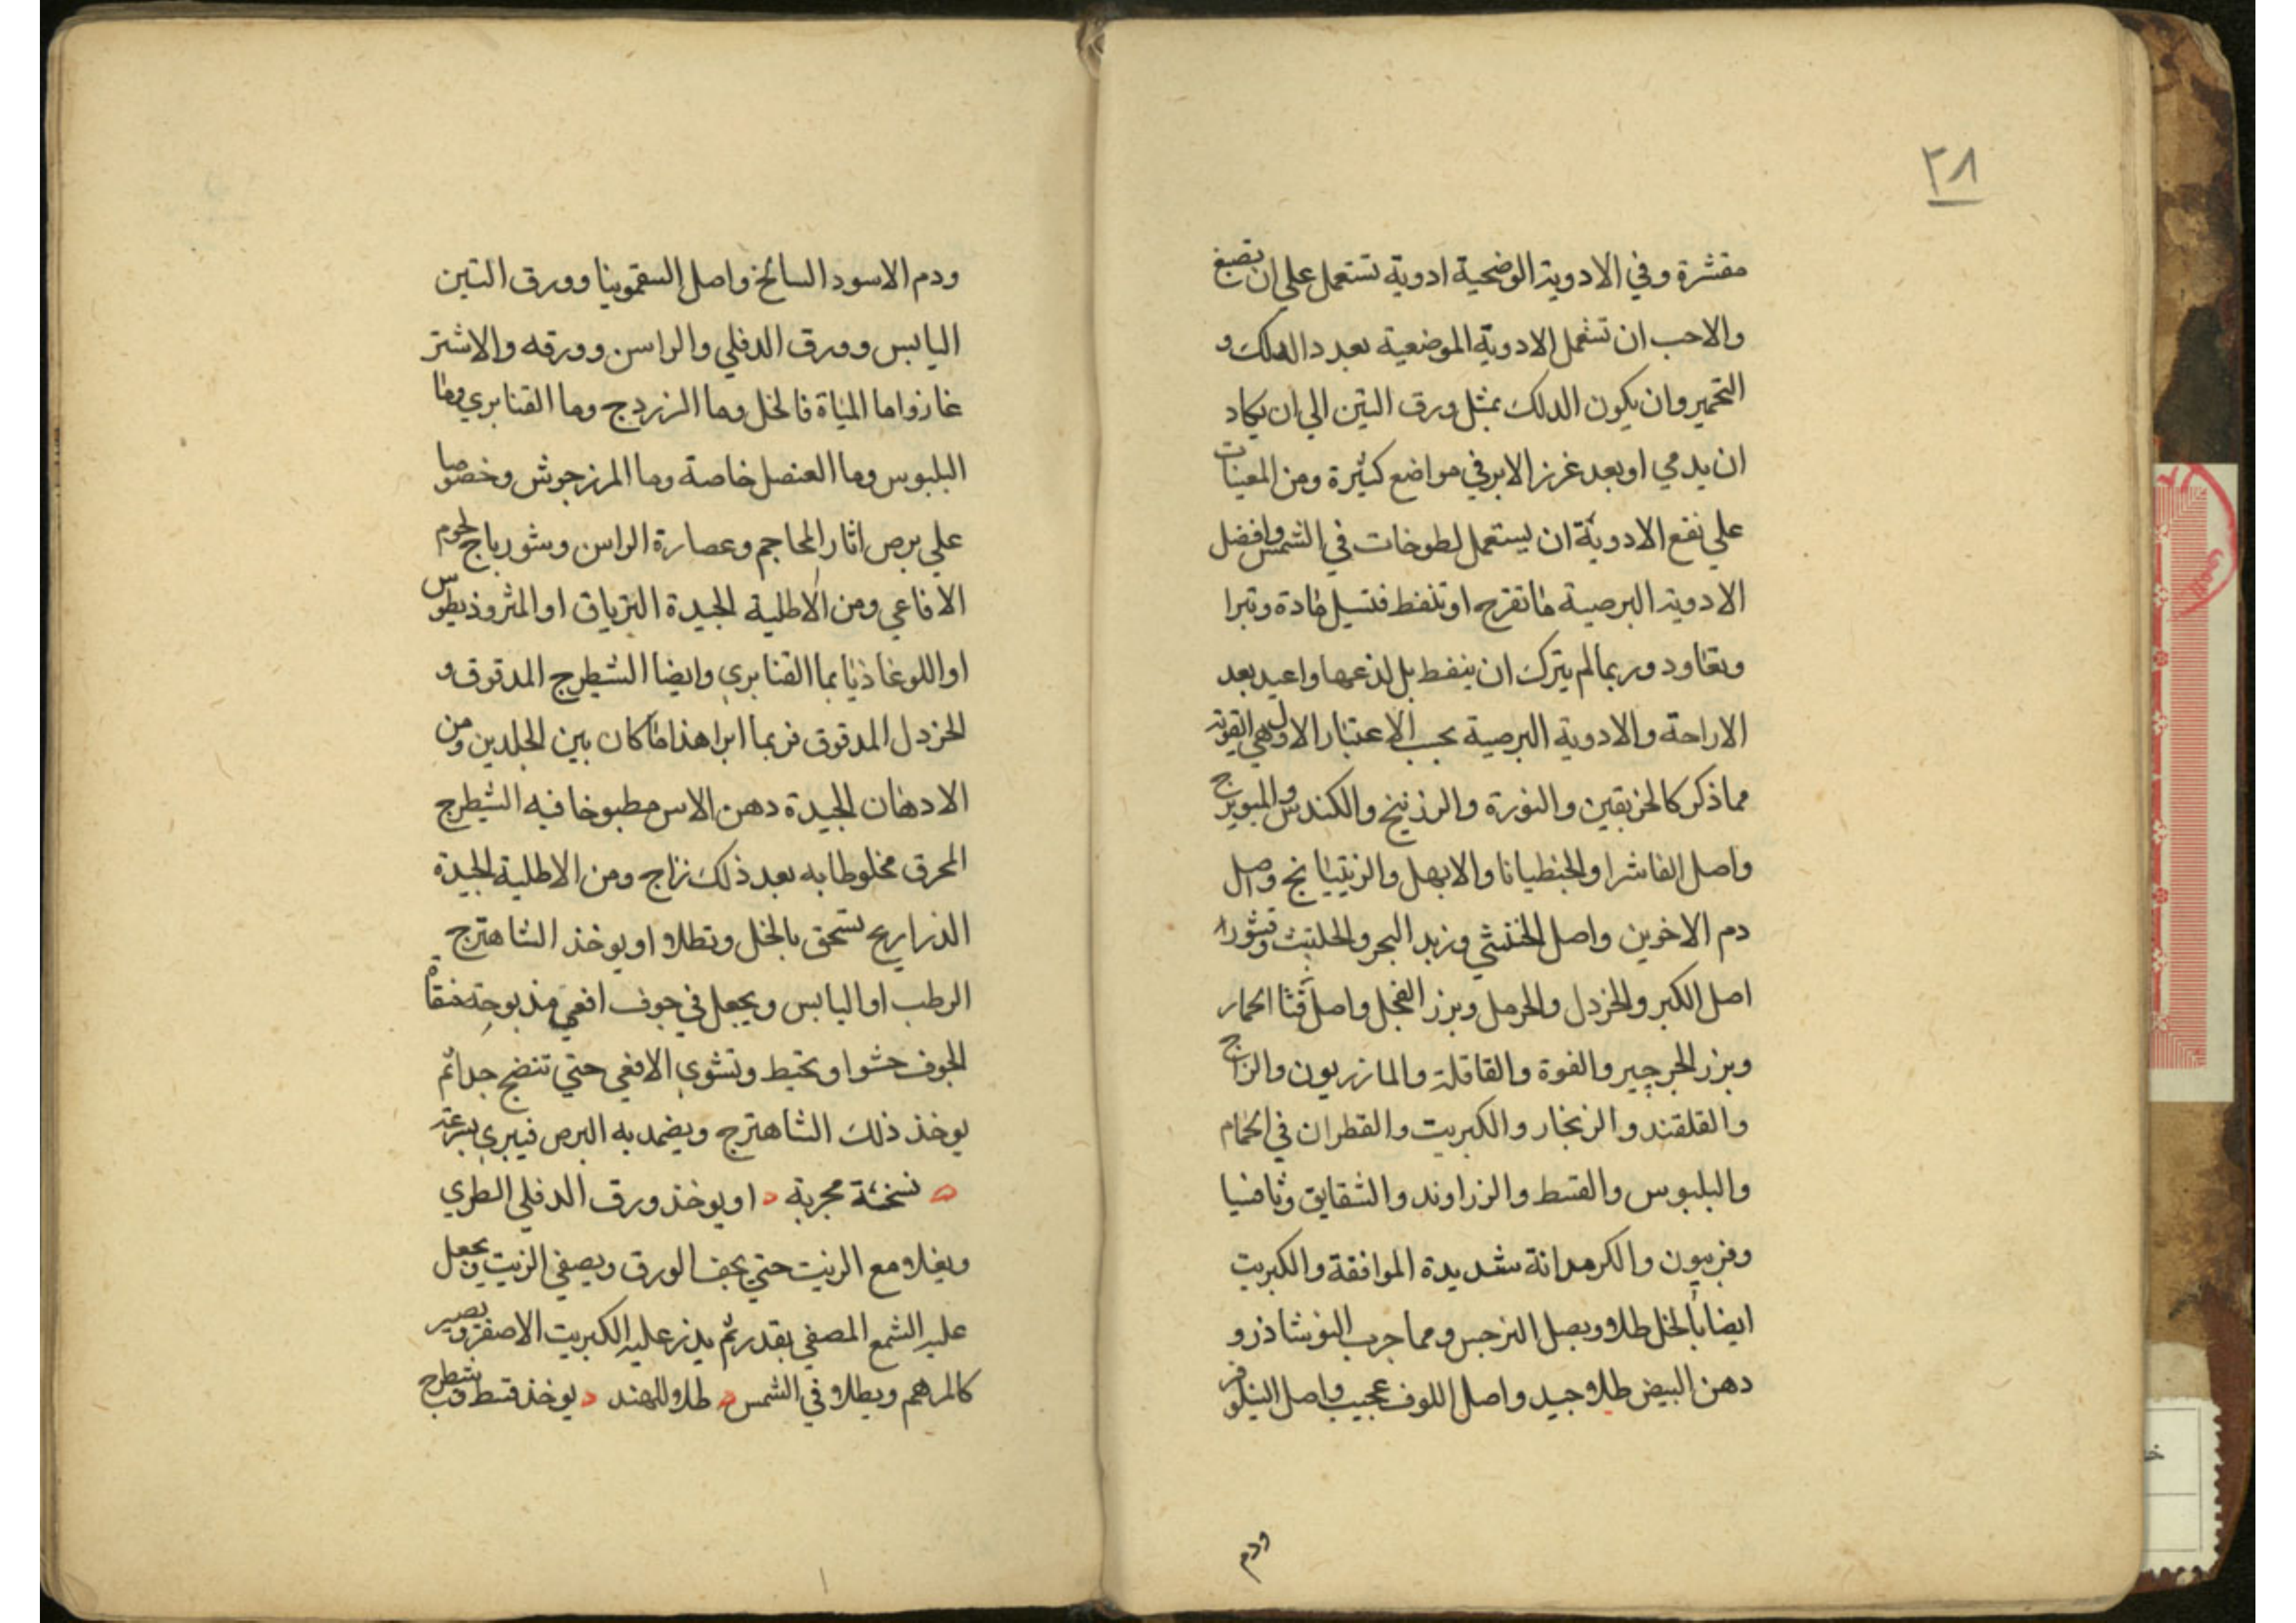 ٢٨
مقشرة وفي الادوية الوضحية ادوية تستعمل علي ان تصبغ
والاحب ان تشمل الادوية الموضعية بعد دالدلك و
التحمير وان يكون الدلك بمثل ورق التين الي ان يكاد
ان يدمي او بعد غرز الابر في مواضع كثيرة ومن المعينات
علي نفع الادوية ان يستعمل لطوخات في الشمس وافضل
الادوية البرصية ما تقرح او تنفط فتسيل مادة وتبرا
وتعاود وربما لم يترك ان ينفط بل لذعها واعيد بعد
الاراحة والادوية البرصية بحسب الاعتبار الاول هي القوية
مما ذكر كالخربقين والنورة والزرنيخ والكندس والميويزج
واصل الفاشرا والجنطيانا والابهل والزيتيانج واصل
دم الاخوين واصل الخنثي وزبد البحر والحلتيت وقشور
اصل الكبر والخردل والحرمل وبزر الفجل واصل قثا الحمار
وبزر الجرجير والفوة والقاقلة والمازريون والزاج
والقلقند والزنجار والكبريت والقطران في الحمام
والبلبوس والقسط والزراوند والشقايق وثافسيا
وفربيون والكرمدانة شديدة الموافقة والكبريت
ايضا بالخل طلاو وبصل النرجس ومما جرب النوشاذر و
دهن البيض طلاو جيد واصل اللوف عجيب واصل النيلوفر
ودم
ودم الاسود السالخ واصل السقمونيا وورق التين
اليابس وورق الدفلي والراسن وورقه والاشتر
غاز واما المياة فالخل وما الزردج وما القنابري وما
البلبوس وما العنصل خاصة وما المرزجوش وخصوصا
علي برص اثار المحاجم وعصارة الراسن وشورباج لحوم
الافاعي ومن الاطلية الجيدة الترياق او المثروذيطوس
او اللوغاذيا بما القنابري وايضا الشيطرج المدقوق و
الخردل المدقوق فربما ابرا هذا ما كان بين الجلدين ومن
الادهان الجيدة دهن الاس مطبوخا فيه الشيطرج
المحرق مخلوطا به بعد ذلك زاج ومن الاطلية الجيدة
الذراريح تسحق بالخل وتطلاو او يوخذ الشاهترج
الرطب او اليابس ويجعل في جوف افعي مذبوحة منقاة
الجوف حشوا ويخيط وتشوي الافعي حتي تنضج جدا ثم
يوخذ ذلك الشاهترج ويضمد به البرص فيبري بسرعة
نسخة مجربة او يوخذ ورق الدفلي الطري
ويغلاو مع الزيت حتي يجف الورق ويصفي الزيت ويجعل
عليه الشمع المصفي بقدر ثم يذر عليه الكبريت الاصفر ويصير
كالمرهم ويطلاو في الشمس طلاو للهند يوخذ قسط وشيطرج